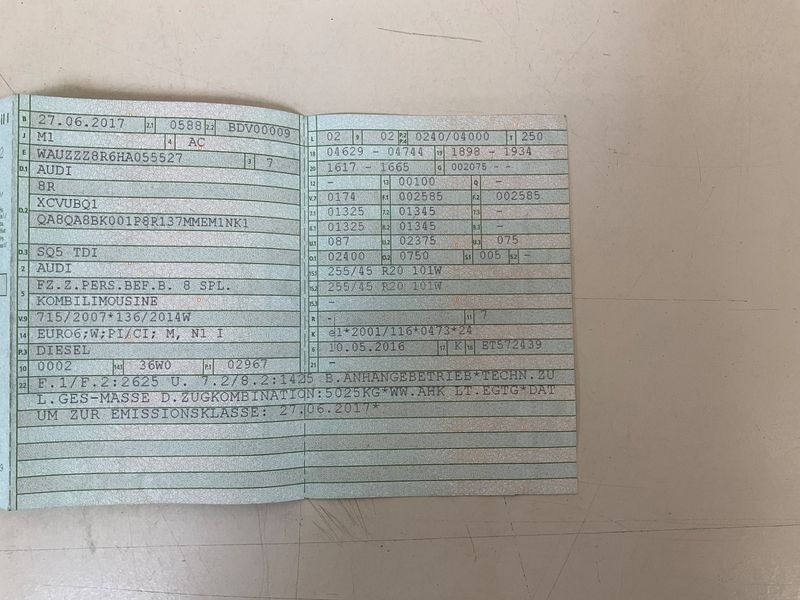 B 27.06.2017 2.1 0588 2.2 BDV00009
J M1 4 AC
E WAUZZZ8R6HA055527 3 7
D.1 AUDI
8R
D.2 XCVUBQ1
QA8QA8BK001P8R137MMEM1NK1
D.3 SQ5 TDI
2 AUDI
5 FZ.Z.PERS.BEF.B. 8 SPL.
KOMBILIMOUSINE
V.9 715/2007*136/2014W
14 EURO6;W;PI/CI; M, N1 I
P.3 DIESEL
10 0002 14.1 36W0 P.1 02967
L 02 9 02 P.2 P.4 0240/04000 T 250
18 04629 - 04744 19 1898 - 1934
20 1617 - 1665 G 002075 --
12 - 13 00100 Q -
V.7 0174 F.1 002585 F.2 002585
7.1 01325 7.2 01345 7.3 -
8.1 01325 8.2 01345 8.3 -
U.1 087 U.2 02375 U.3 075
O.1 02400 O.2 0750 S.1 005 S.2 -
15.1 255/45 R20 101W
15.2 255/45 R20 101W
15.3 -
R - 11 7
K e1*2001/116*0473*24
6 10.05.2016 17 K 16 ET572439
21 -
22 F.1/F.2:2625 U. 7.2/8.2:1425 B.ANHANGEBETRIEB*TECHN.ZU
L.GES-MASSE D.ZUGKOMBINATION:5025KG*WW.AHK LT.EGTG*DAT
UM ZUR EMISSIONSKLASSE: 27.06.2017*